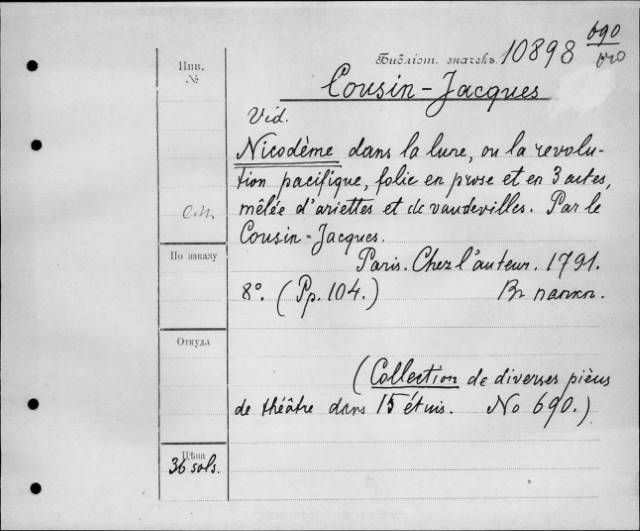 Библіот. значекъ. 10898 690
Инв.
№
Cousin-Jacques
Vid.
Nicodème dans la lune, ou la revolu-
tion pacifique, folie en prose et en 3 actes,
mêlée d'ariettes et de vaudevilles. Par le
Cousin-Jacques.
По заказу
Paris. Chez l'auteur. 1791.
8°. (Pp. 104.) Въ папкѣ.
Откуда
(Collection de diverses pièces
de théâtre dans 15 étuis. No 690.)
Цѣна
36 sols.